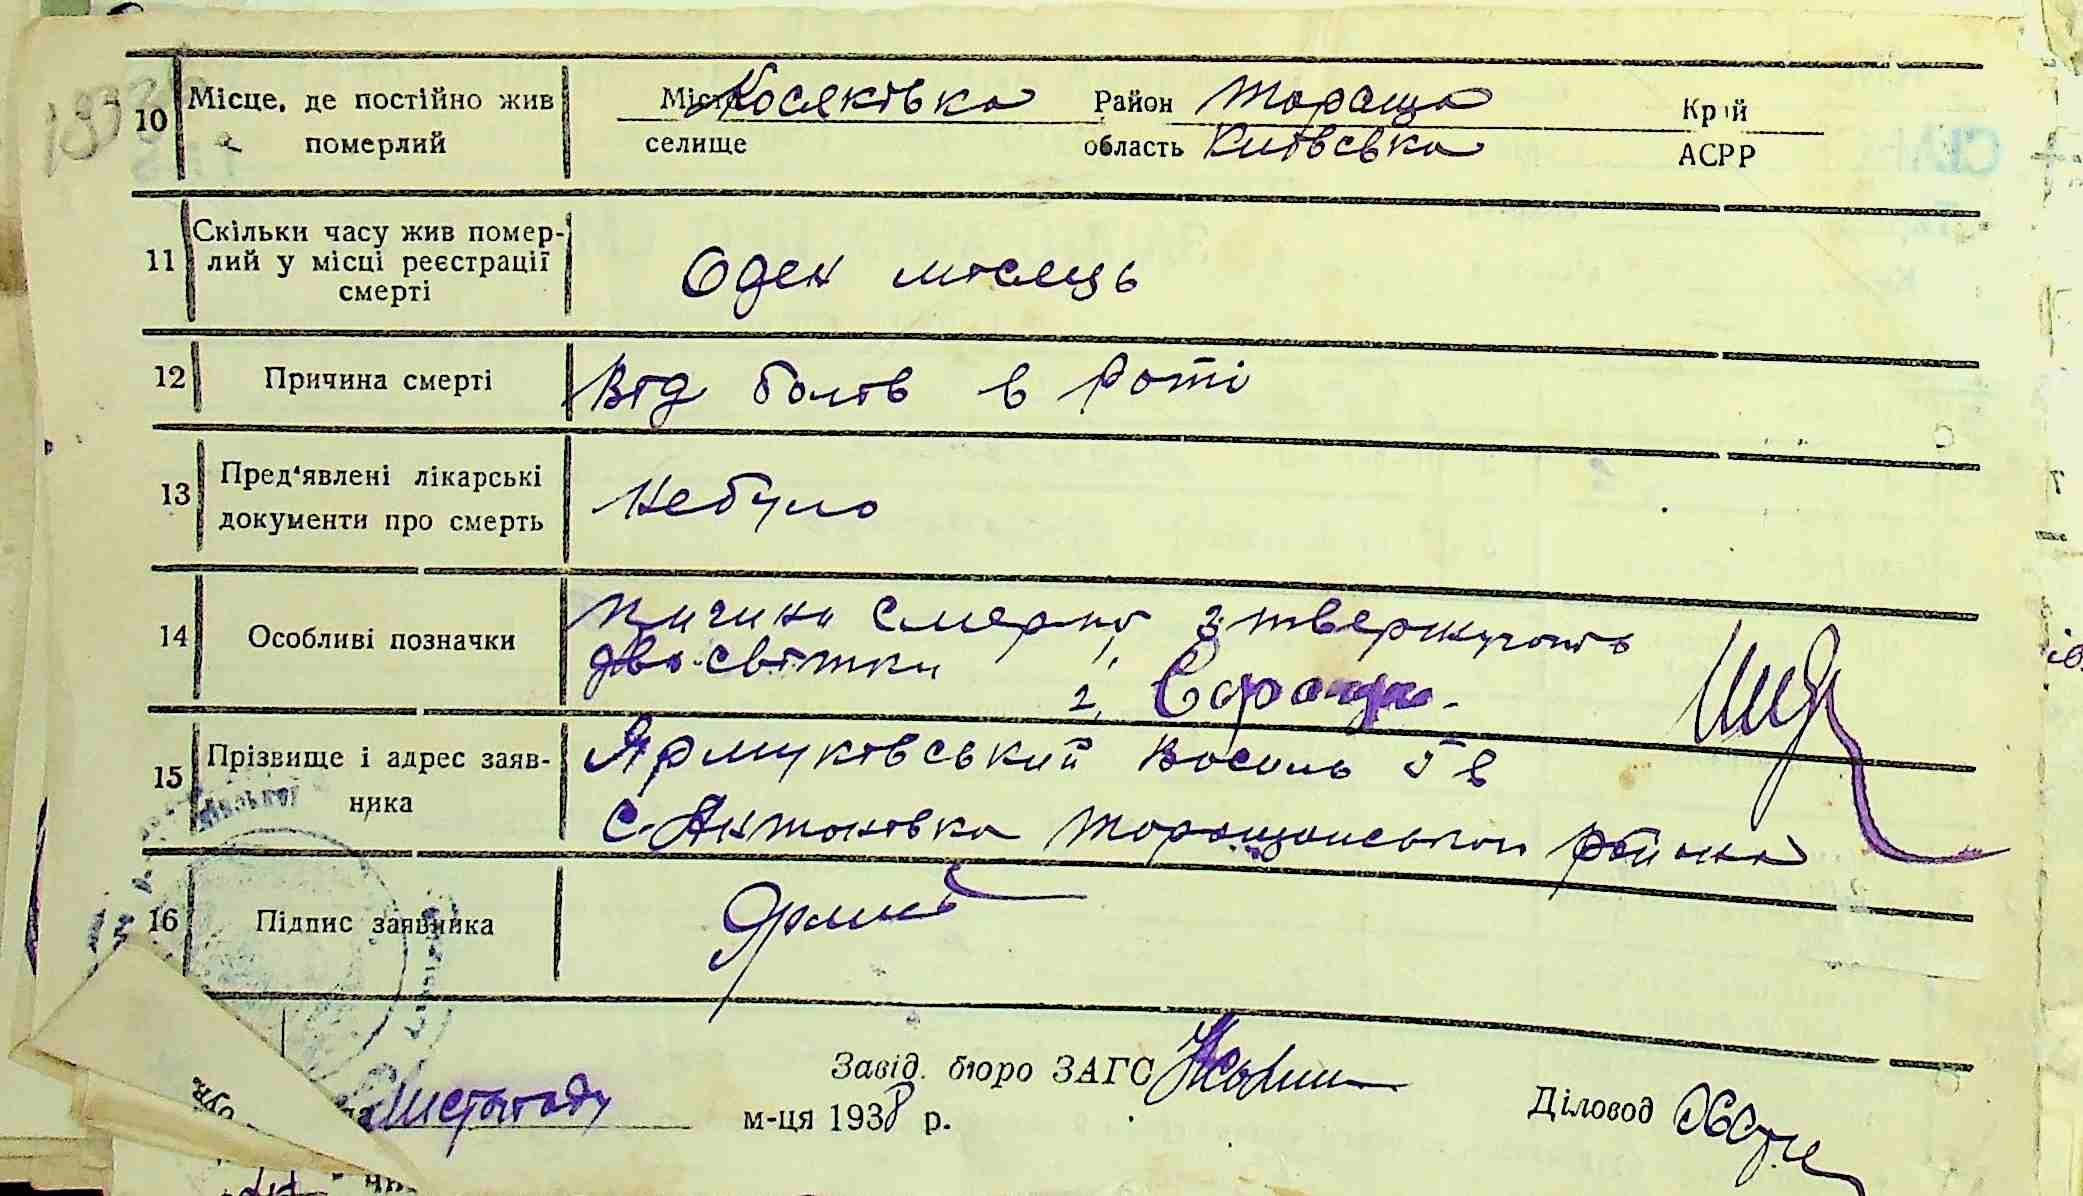 10 Місце, де постійно жив померлий
Місто Косяківка Район Тараща Край
селище область Київська АСРР
11 Скільки часу жив помер-
лий у місці реєстрації
смерті
Оден місяць
12 Причина смерті Від болів в роті
13 Пред'явлені лікарські
документи про смерть
Небуло
14 Особливі позначки
смерті
два світки 1,
2,
15 Прізвище і адрес заяв-
ника
Ярмуківський Василь
с. Антонівка Таращанського района
16 Підпис заявника
Завід. бюро ЗАГС
Листопаду м-ця 1938 р.
Діловод